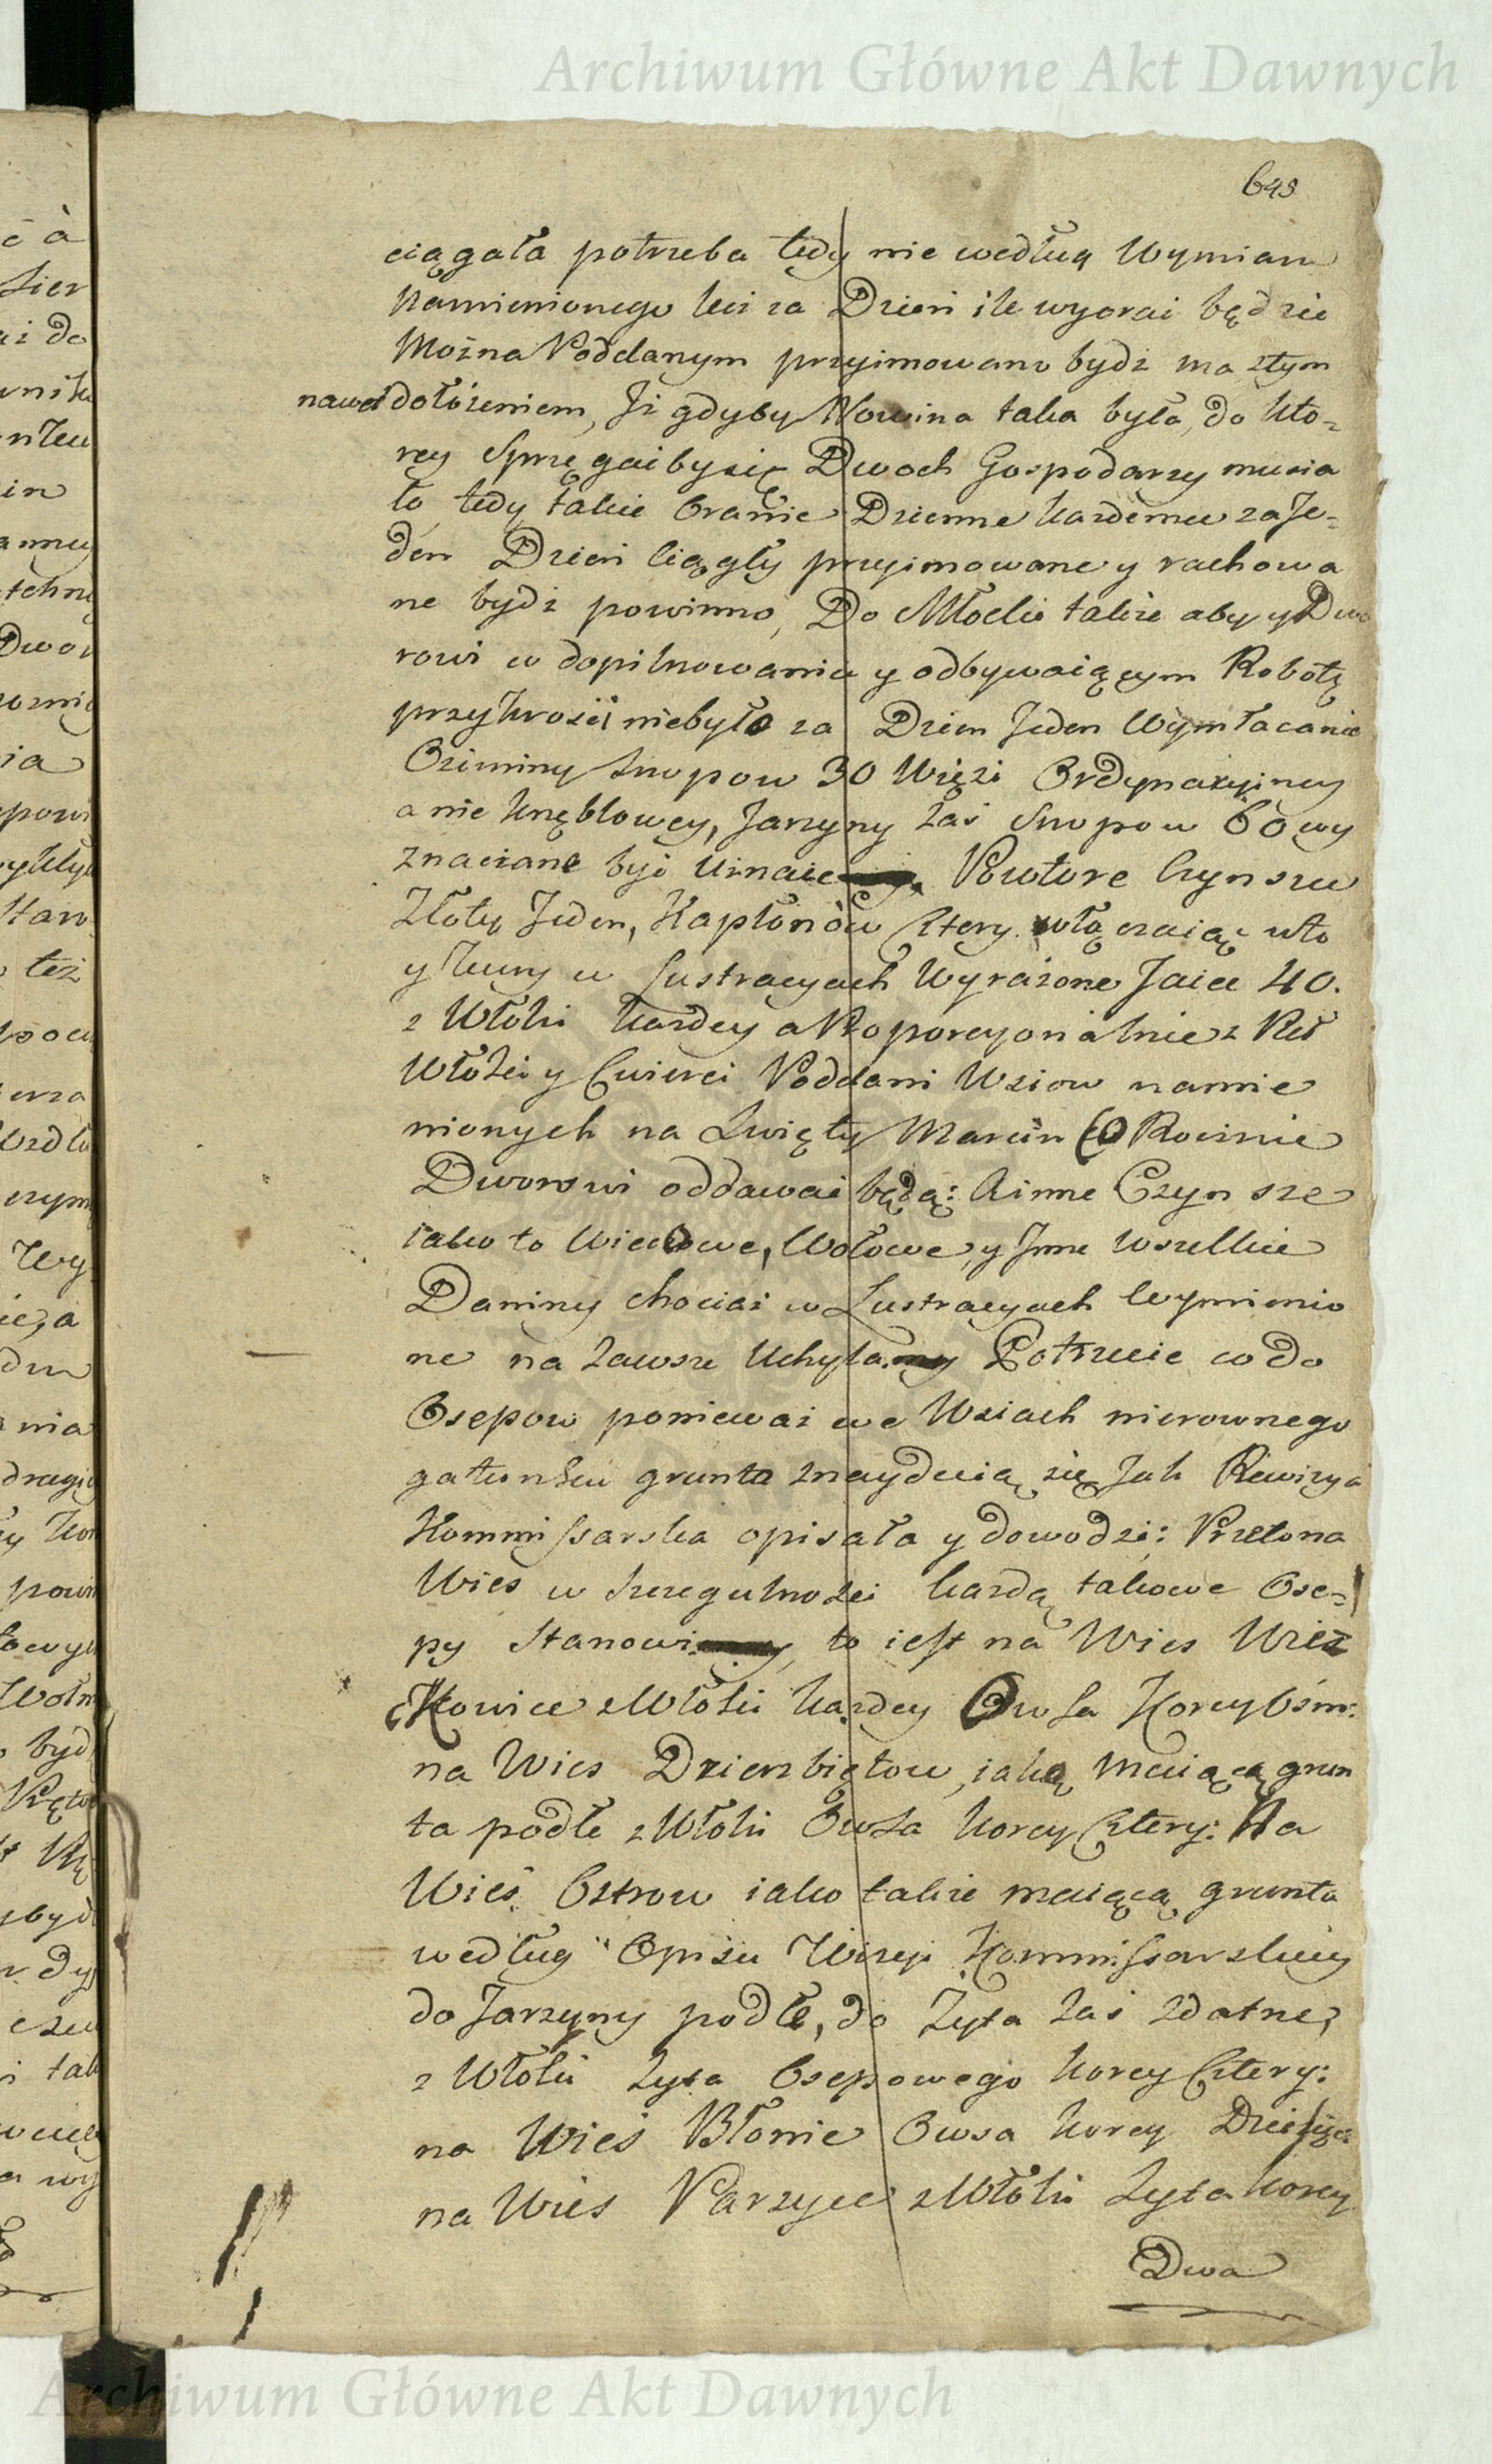 Archiwum Główne Akt Dawnych
ciągała potrzeba tedy nie według Wymiaru
Namienionego lecz za Dzień ile wyorać będzie
Można Poddanym przyimowano bydź ma ztym
nawet dołożeniem, Jż gdyby Nowina taka była, do kto-
rey Sprzęgaćbysię Dwoch Gospodarzy musia
ło, tedy takie Oranie Dzienne każdemu za Je-
den Dzień ciągły przyimowane y rachowa
ne bydź powinno, Do Młocki także aby y Dwo
rowi w dopilnowaniu y odbywaiącym Robotę
przykrości niebyło za Dzien Jeden Wymłacanie
Oziminy Snopow 30 Więzi Ordynaryiney
a nie knęblowey, Jarzyny zaś Snopow 60 wy
znaczane być uznaie Powtore Czynszu
Złoty Jeden, Kapłonów cztery włączaiąc wto
y Kury w Lustracyach Wyrażone Jaiec 40.
z Włoki każdey a Proporcyonalnie z Puł
Włoki y Cwierci Poddani Wsiow namie
nionych na Swięty Marcin CO Rocznie
Dworowi oddawać będą: A inne Czynsze
iako to Wiecowe, Wołowe, y Jnne wszelkie
Daniny chociaż w Lustracyach wymienio
ne na zawsze Uchyla. Potrzecie co do
Osepow ponieważ we Wsiach nierownego
gatunku grunta znayduią się Jak Rewizya
Kommissarska opisała y dowodzi: Przeto na
Wies w szczegulności każdą takowe Ose-
py Stanowi to iest na Wies Wież
Kowice z Włoki każdey Owsa Korcy Ośm:
na Wies Dzierzbiętow, iako maiącą grun
ta podłe z Włoki Owsa korcy cztery: Na
Wieś Ostrow iako także maiącą grunta
według Opisu Wizyi Kommissarskiey
do Jarzyny podłe, do Żyta zaś zdatne,
z Włoki Żyta Osepowego korcy Cztery:
na Wieś Błonie Owsa korcy Dziesięć
na Wieś Parzyce z Włoki Żyta korcy
Dwa
Archiwum Główne Akt Dawnych